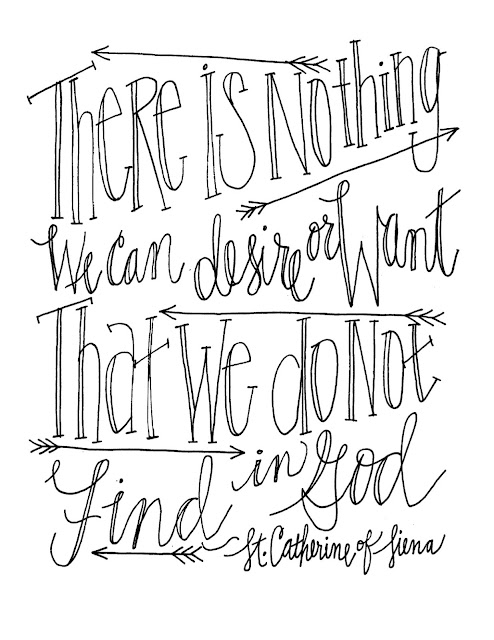 There is Nothing
We can desire or Want
That We do Not
find in God
St. Catherine of Siena